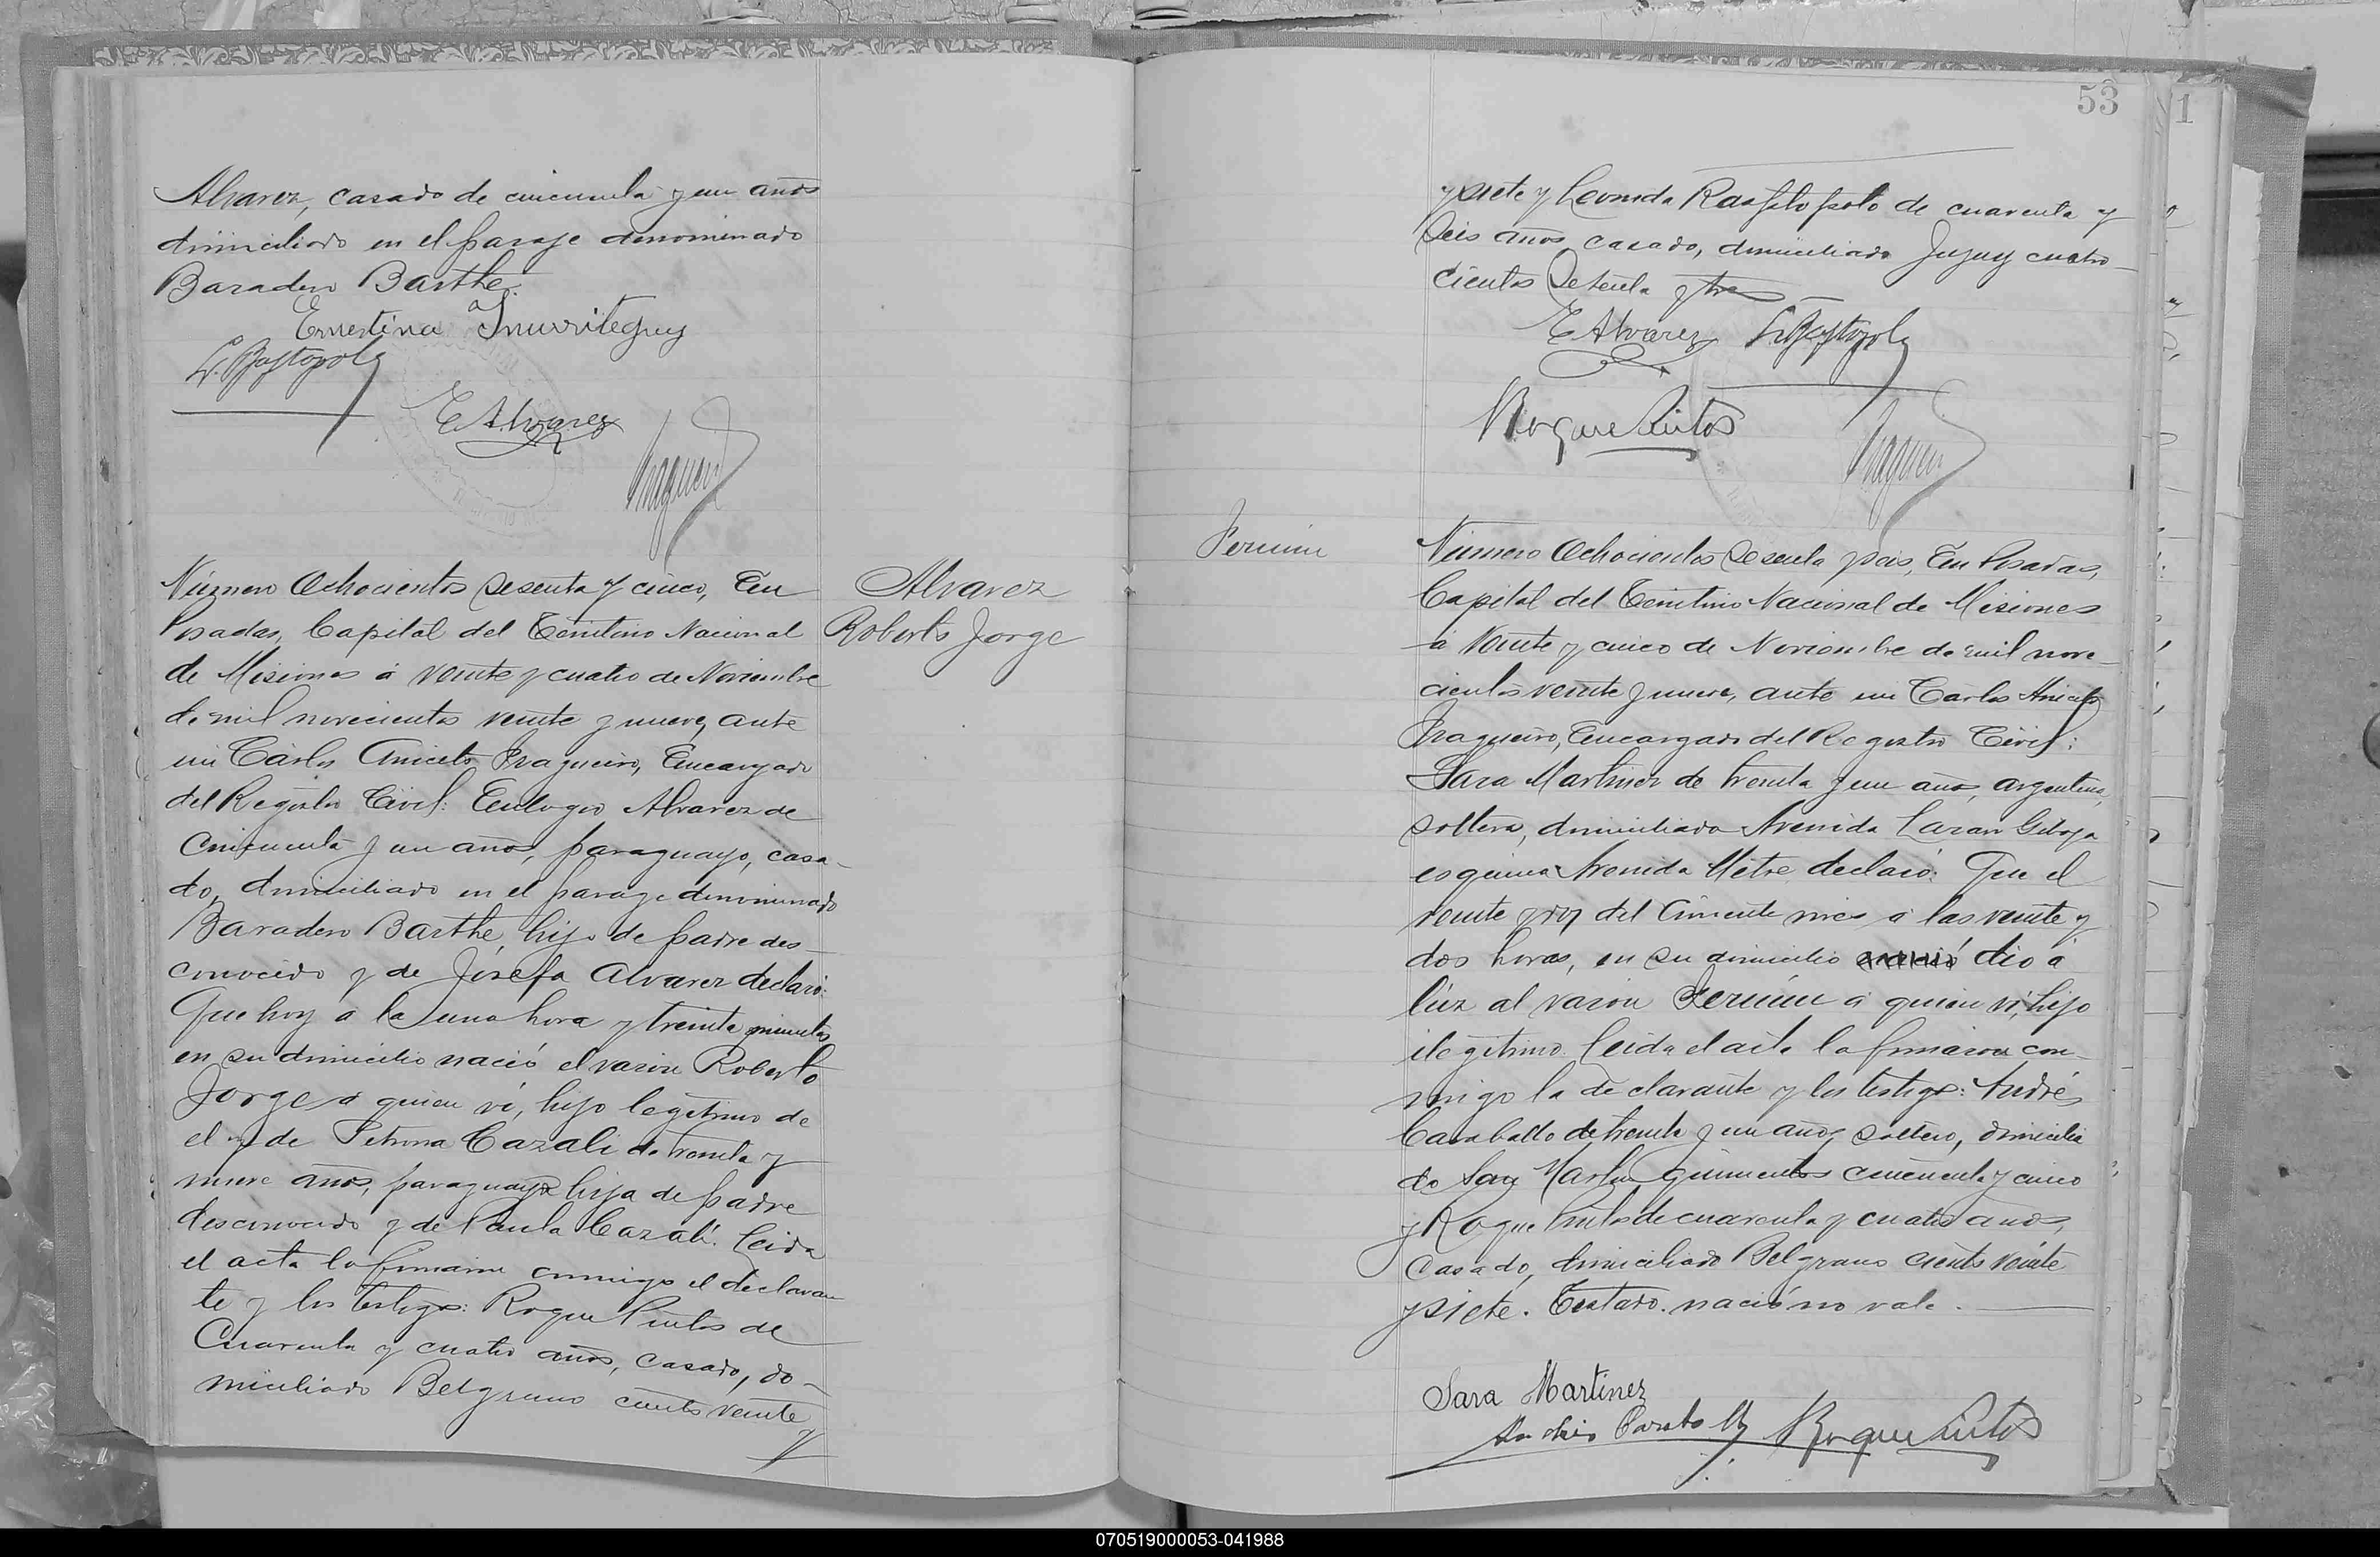 Alvarez, casado de cincuenta y un años
domiciliado en el paraje denominado
Baradero Barthe.
Ernestina Inurritegny
E Alvarez
Número Ochocientos sesenta y cinco, En
Posadas, Capital del Territorio Nacional
de Misiones á veinte y cuatro de Noviembre
de mil novecientos veinte y nueve, ante
mi Carlos Aniceto Fragueiro, Encargado
del Registro Civil: Eulogio Alvarez de
cincuenta y un años, paraguayo, casa-
do, domiciliado en el paraje denominado
Baradero Barthe, hijo de padre des-
conocido y de Josefa Alvarez declaró:
Que hoy a la una hora y treinta minutos
en su domicilio nació el varon Roberto
Jorge a quien ví, hijo legítimo de
el y de Petrona Cazali de treinta y
nueve años, paraguaya hija de padre
desconocido y de Paula Cazali. Leida
el acta la firmaron conmigo el declaran
te y los testigos: Roque Pintos de
Cuarenta y cuatro años, casado, do-
miciliado Belgrano ciento veinte
y
Alvarez
Roberto Jorge
53
1
y siete y Leonida de cuarenta y
seis años casado, domiciliado Jujuy cuatro-
cientos setenta y tres
E Alvarez
Roque Pintos
Fermin
Número Ochocientos sesenta y seis, En Posadas,
Capital del Territorio Nacional de Misiones
a veinte y cinco de Noviembre de mil nove-
cientos veinte y nueve, ante mi Carlos Aniceto
Fragueiro, Encargado del Registro Civil:
Sara Martinez de treinta y un años, argentina,
soltera, domiciliada Avenida
esquina Avenida Mitre declaró: Que el
veinte y dos del corriente mes a las veinte y
dos horas, en su domicilio nació dió á
lúz al varon Fermín a quien ví, hijo
ilegítimo. Leida el acta la firmaron con-
migo la declarante y los testigos: Andrés
Caraballo de treinta y un años soltero, domicilia
do San Martin quinientos cincuenta y cinco
y Roque Pintos de cuarenta y cuatro años,
casado, domiciliado Belgrano ciento veinte
y siete. Testado. nació no vale.
Sara Martinez
Roque Pintos
070519000053-041988